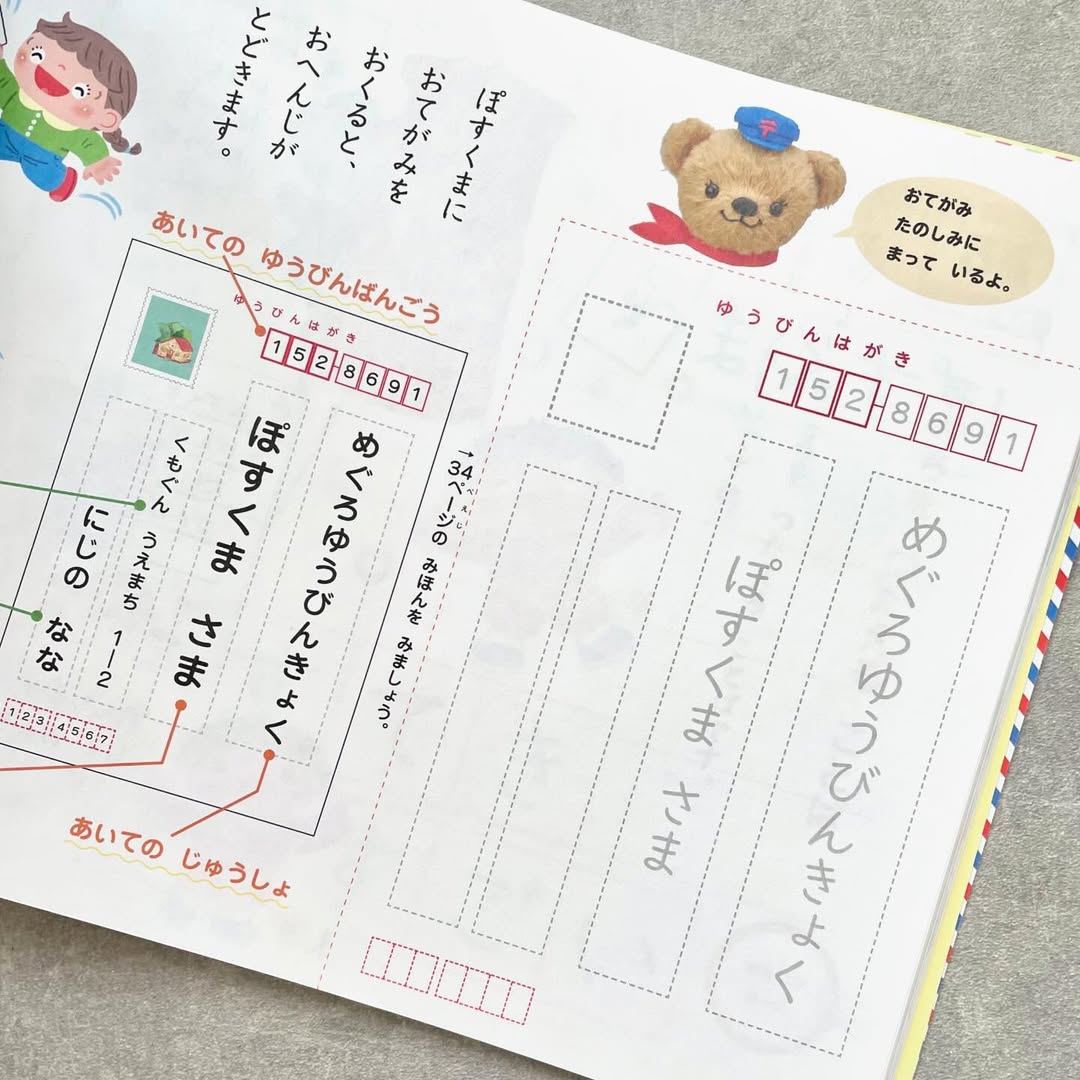 ぽすくまに
おてがみを
おくると、
おへんじが
とどきます。
おてがみ
たのしみに
まって いるよ。
あいての ゆうびんばんごう
ゆうびんはがき
152-8691
めぐろゆうびんきょく
ぽすくま さま
くもぐん うえまち 1―2
にじの なな
1234567
あいての じゅうしょ
→34ページの みほんを みましょう。
ぺえじ
ゆうびんはがき
152-8691
めぐろゆうびんきょく
ぽすくま さま